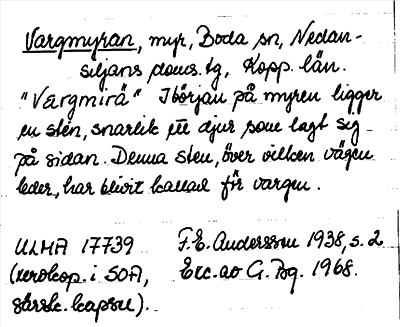 Vargmyran, myr, Boda sn, Nedan-
siljans doms. tg, Kopp. län.
"Værgmirä" I början på myren ligger
en sten, snarlik ett djur som lagt sig
på sidan. Denna sten, över vilken vägen
leder, har blivit kallad för vargen.
ULMA 17739
(xerokop. i SOA,
särsk. kapsel).
F.E. Andersson 1938, s. 2
Exc. av G. Bg. 1968.